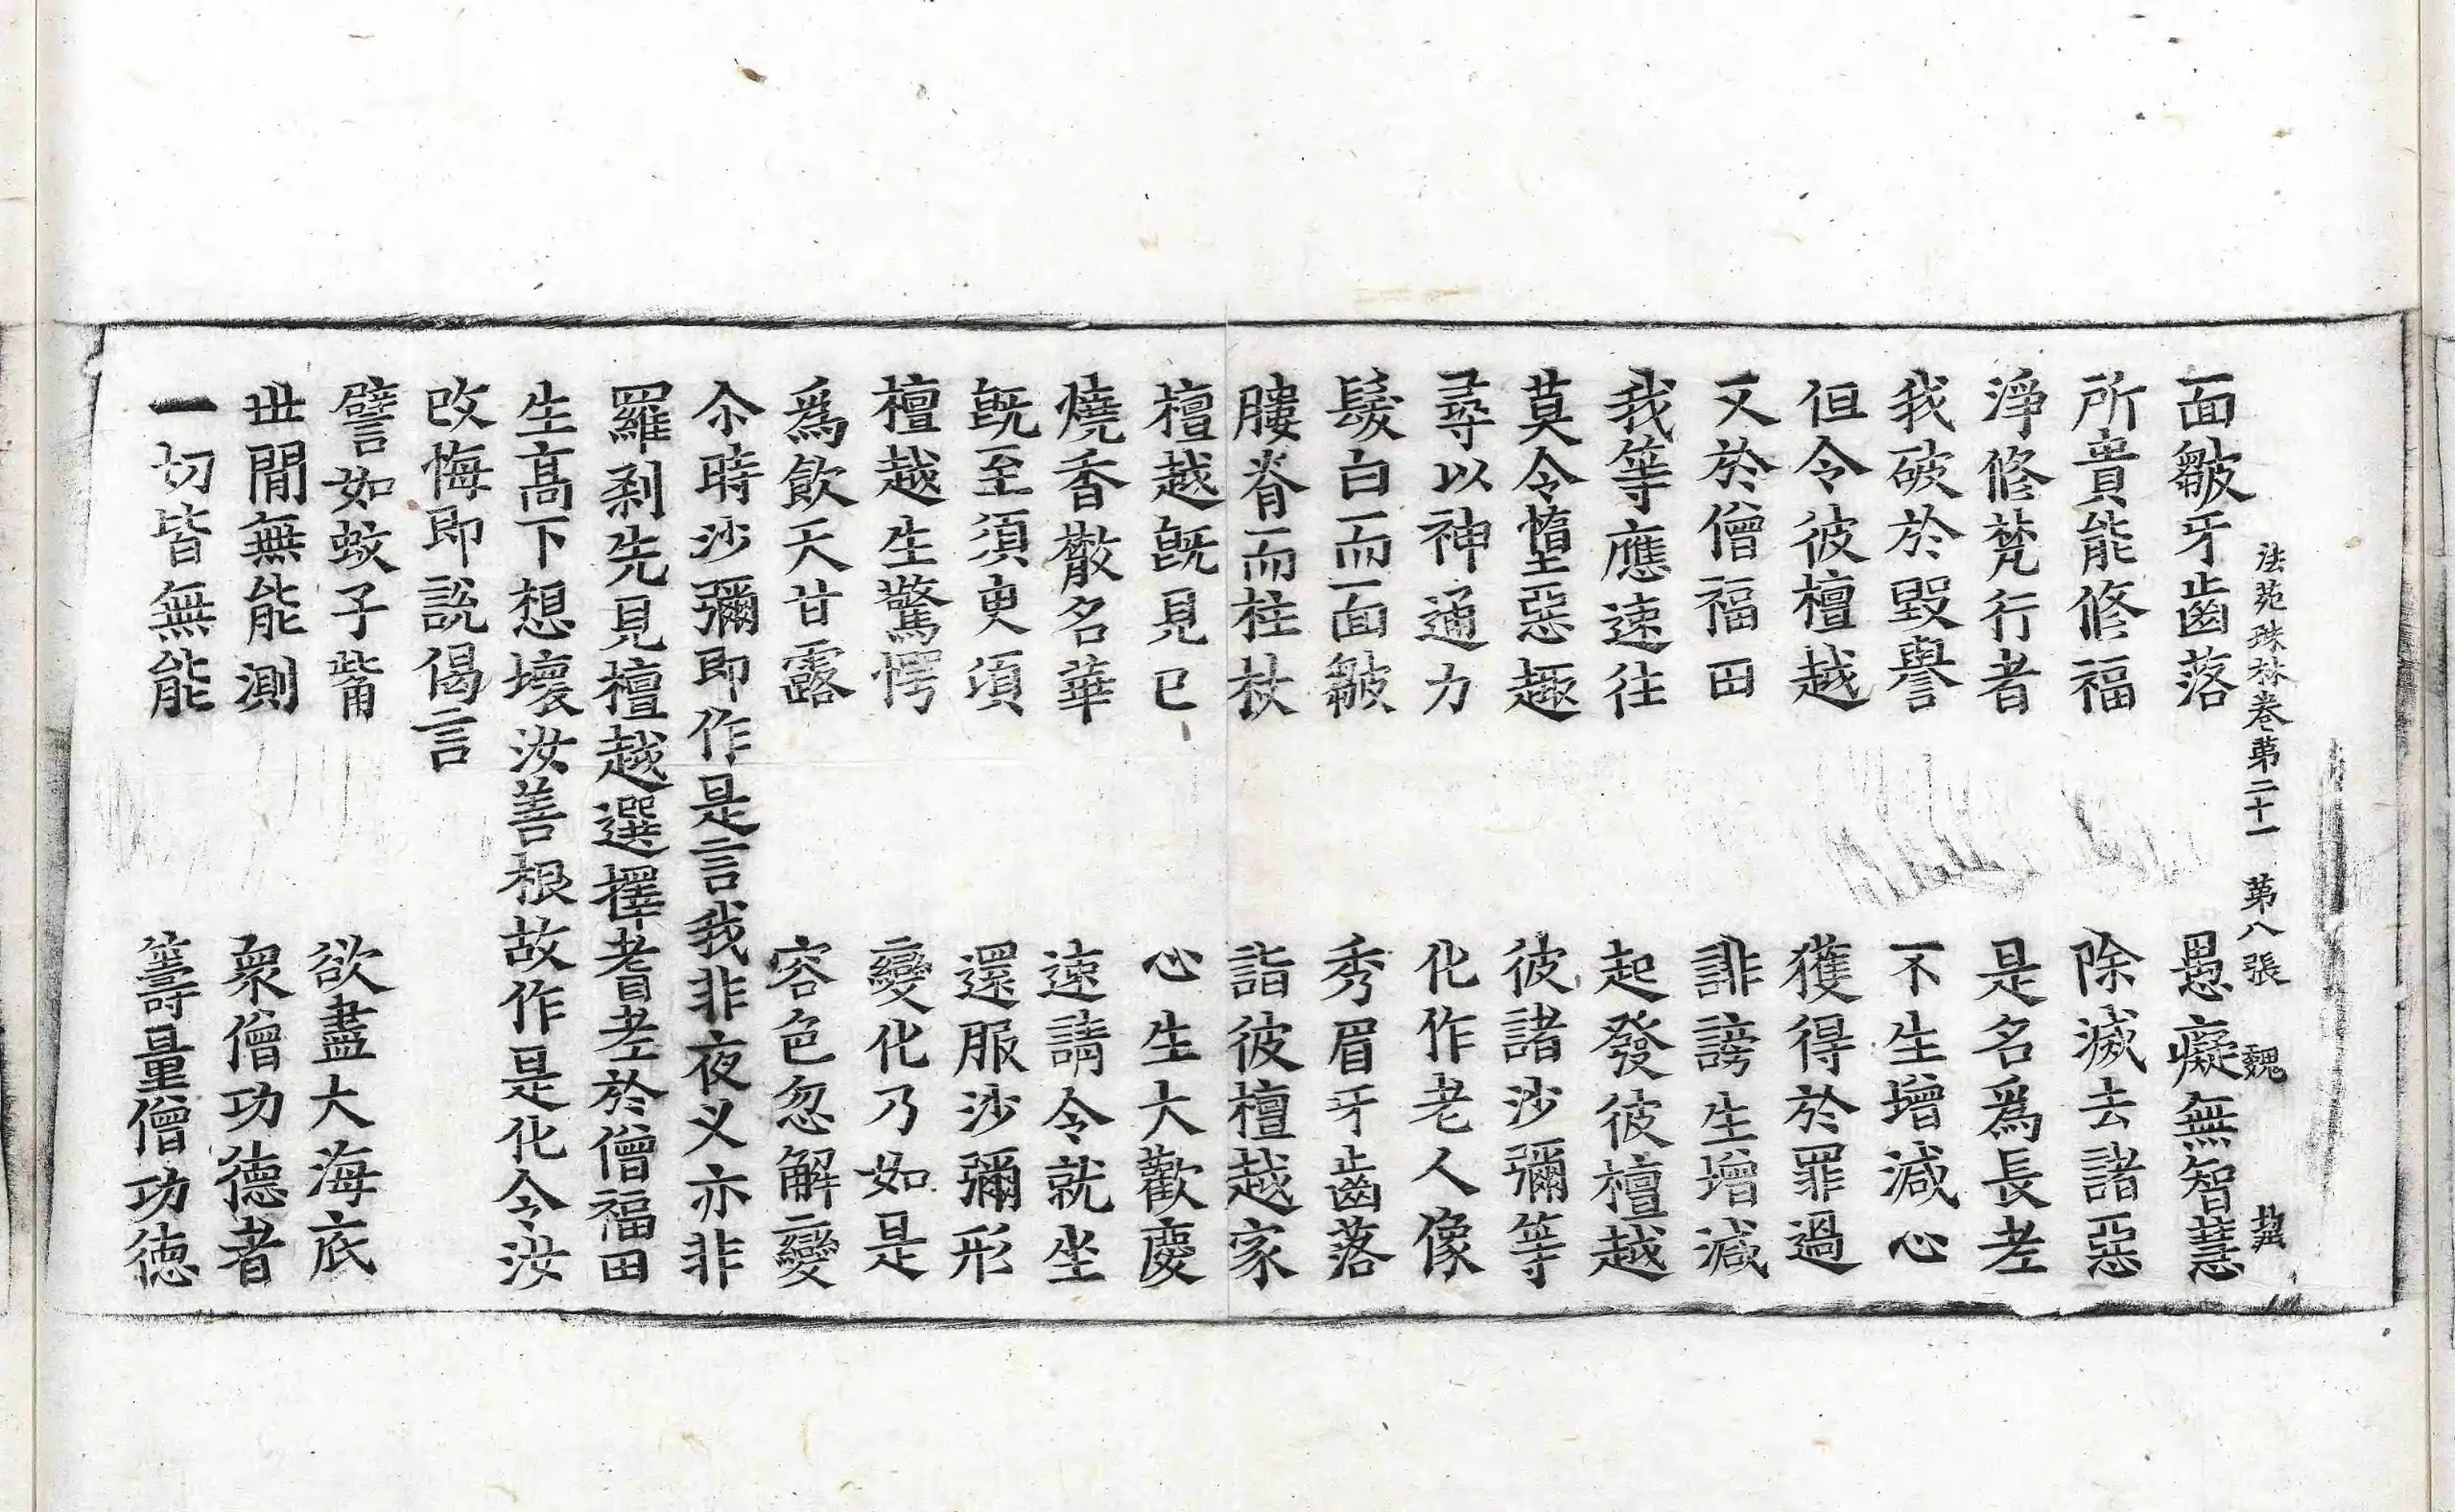 法苑珠林卷第二十一　第八張　魏
面皺牙齒落　愚癡無智慧
所貴能修福　除滅去諸惡
淨修梵行者　是名爲長老
我破於毀譽　不生增減心
但令彼檀越　獲得於罪過
又於僧福田　誹謗生增減
我等應速往　起發彼檀越
莫令墮惡趣　彼諸沙彌等
尋以神通力　化作老人像
髮白而面皺　秀眉牙齒落
膢脊而柱杖　詣彼檀越家
檀越旣見已　心生大歡慶
燒香散名華　速請令就坐
旣至須臾頃　還服沙彌形
檀越生驚愕　變化乃如是
爲飮天甘露　容色忽解變
尒時沙彌即作是言我非夜义亦非
羅刹先見檀越選擇耆老於僧福田
生高下想壞汝善根故作是化令汝
改悔即說偈言
譬如蚊子觜　欲盡大海底
世閒無能測　衆僧功德者
一切皆無能　籌量僧功德